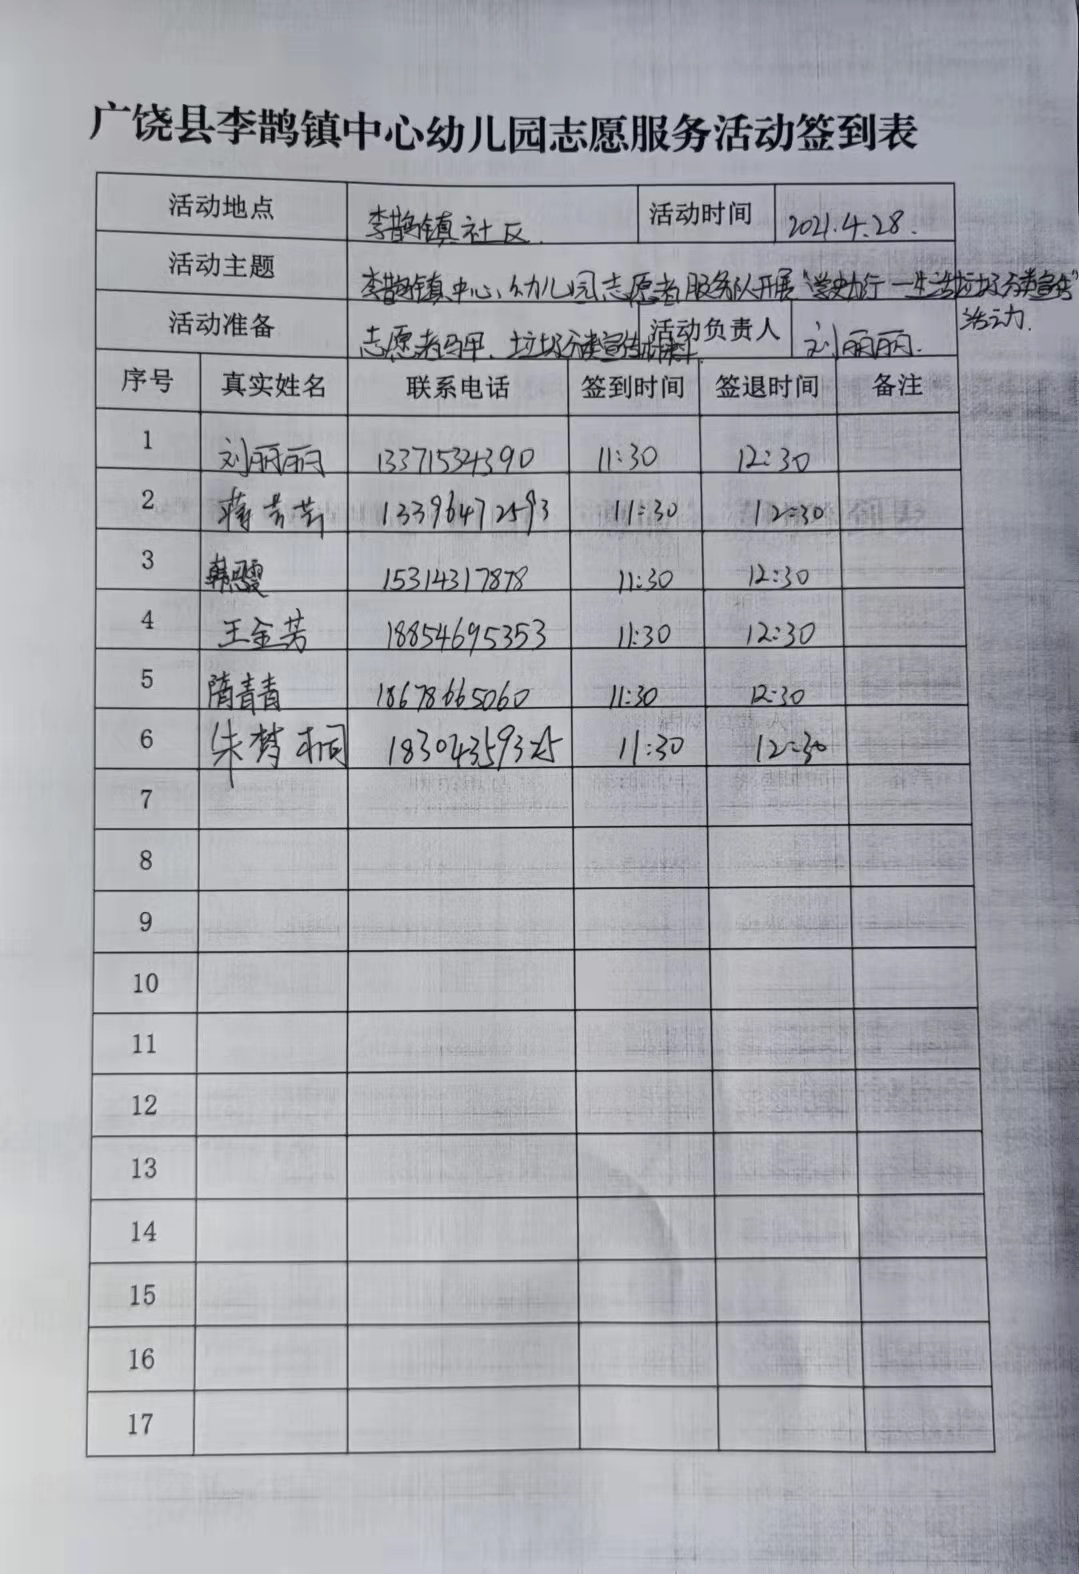 广饶县李鹊镇中心幼儿园志愿服务活动签到表
活动地点 李鹊镇社区. 活动时间 2021.4.28.
活动主题 李鹊镇中心幼儿园志愿者服务队开展“学史力行—生活垃圾分类宣传”活动.
活动准备 志愿者马甲、垃圾分类宣传材料. 活动负责人 刘丽丽.
序号 真实姓名 联系电话 签到时间 签退时间 备注
1 刘丽丽 13371534390 11:30 12:30
2 蒋芳芳 13396471293 11:30 12:30
3 韩雯 15314317878 11:30 12:30
4 王金芳 18854695353 11:30 12:30
5 隋青青 18678665060 11:30 12:30
6 朱梦桐 18304359325 11:30 12:30
7
8
9
10
11
12
13
14
15
16
17